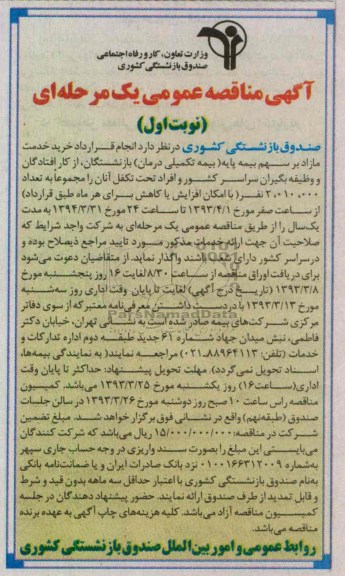 وزارت تعاون، کار و رفاه اجتماعی
صندوق بازنشستگی کشوری
آگهی مناقصه عمومی یک مرحله‌ای
(نوبت اول)
صندوق بازنشستگی کشوری در نظر دارد انجام قرارداد خرید خدمت
مازاد بر سهم بیمه پایه( بیمه تکمیلی درمان) بازنشستگان، از کار افتادگان
و وظیفه بگیران سراسر کشور و افراد تحت تکفل آنان را مجموعا به تعداد
۲،۰۱۰،۰۰۰ نفر( با امکان افزایش یا کاهش برای هر ماه طبق قرارداد)
از ساعت صفر مورخ ۱۳۹۳/۴/۱ تا ساعت ۲۴ مورخ ۱۳۹۴/۳/۳۱ به مدت
یک‌سال را از طریق مناقصه عمومی یک مرحله‌ای به شرکت واجد شرایط که
صلاحیت آن جهت ارائه خدمات مذکور مورد تایید مراجع ذیصلاح بوده و
در سراسر کشور دارای شعب باشند واگذار نماید. از متقاضیان دعوت می‌شود
برای دریافت اوراق مناقصه از ساعت ۸/۳۰ لغایت ۱۶ روز پنجشنبه مورخ
۱۳۹۳/۳/۸ (تاریخ درج آگهی) لغایت تا پایان وقت اداری روز سه‌شنبه
مورخ ۱۳۹۳/۳/۱۳ با در دست داشتن معرفی‌نامه معتبر که از سوی دفاتر
مرکزی شرکت‌های بیمه صادر شده است به نشانی تهران، خیابان دکتر
فاطمی، نبش میدان جهاد شماره ۶۱ جدید طبقه دوم اداره تدارکات و
خدمات (تلفن: ۸۸۹۶۴۱۱۳-۰۲۱) مراجعه نمایند( به نمایندگی بیمه‌ها،
اسناد تحویل نمی‌گردد). مهلت تحویل پیشنهاد: حداکثر تا پایان وقت
اداری(ساعت۱۶) روز یکشنبه مورخ ۱۳۹۳/۳/۲۵ می‌باشد. کمیسیون
مناقصه راس ساعت ۱۰ صبح روز دوشنبه مورخ ۱۳۹۳/۳/۲۶ در سالن جلسات
صندوق (طبقه نهم) واقع در نشانی فوق برگزار خواهد شد. مبلغ تضمین
شرکت در مناقصه: ۱۵/۰۰۰/۰۰۰/۰۰۰ ریال می‌باشد که شرکت کنندگان
می‌بایستی این مبلغ را بصورت سند واریزی در وجه حساب جاری سپهر
به‌شماره ۰۱۰۰۱۶۶۳۱۲۰۰۹ نزد بانک صادرات ایران و یا ضمانت‌نامه بانکی
به‌نام صندوق بازنشستگی کشوری با اعتبار حداقل سه ماهه بدون قید و شرط
و قابل تمدید از طرف صندوق ارائه نمایند. حضور پیشنهاد دهندگان در جلسه
کمیسیون مناقصه آزاد می‌باشد. کلیه هزینه‌های چاپ آگهی به عهده برنده
مناقصه می‌باشد.
روابط عمومی و امور بین الملل صندوق بازنشستگی کشوری